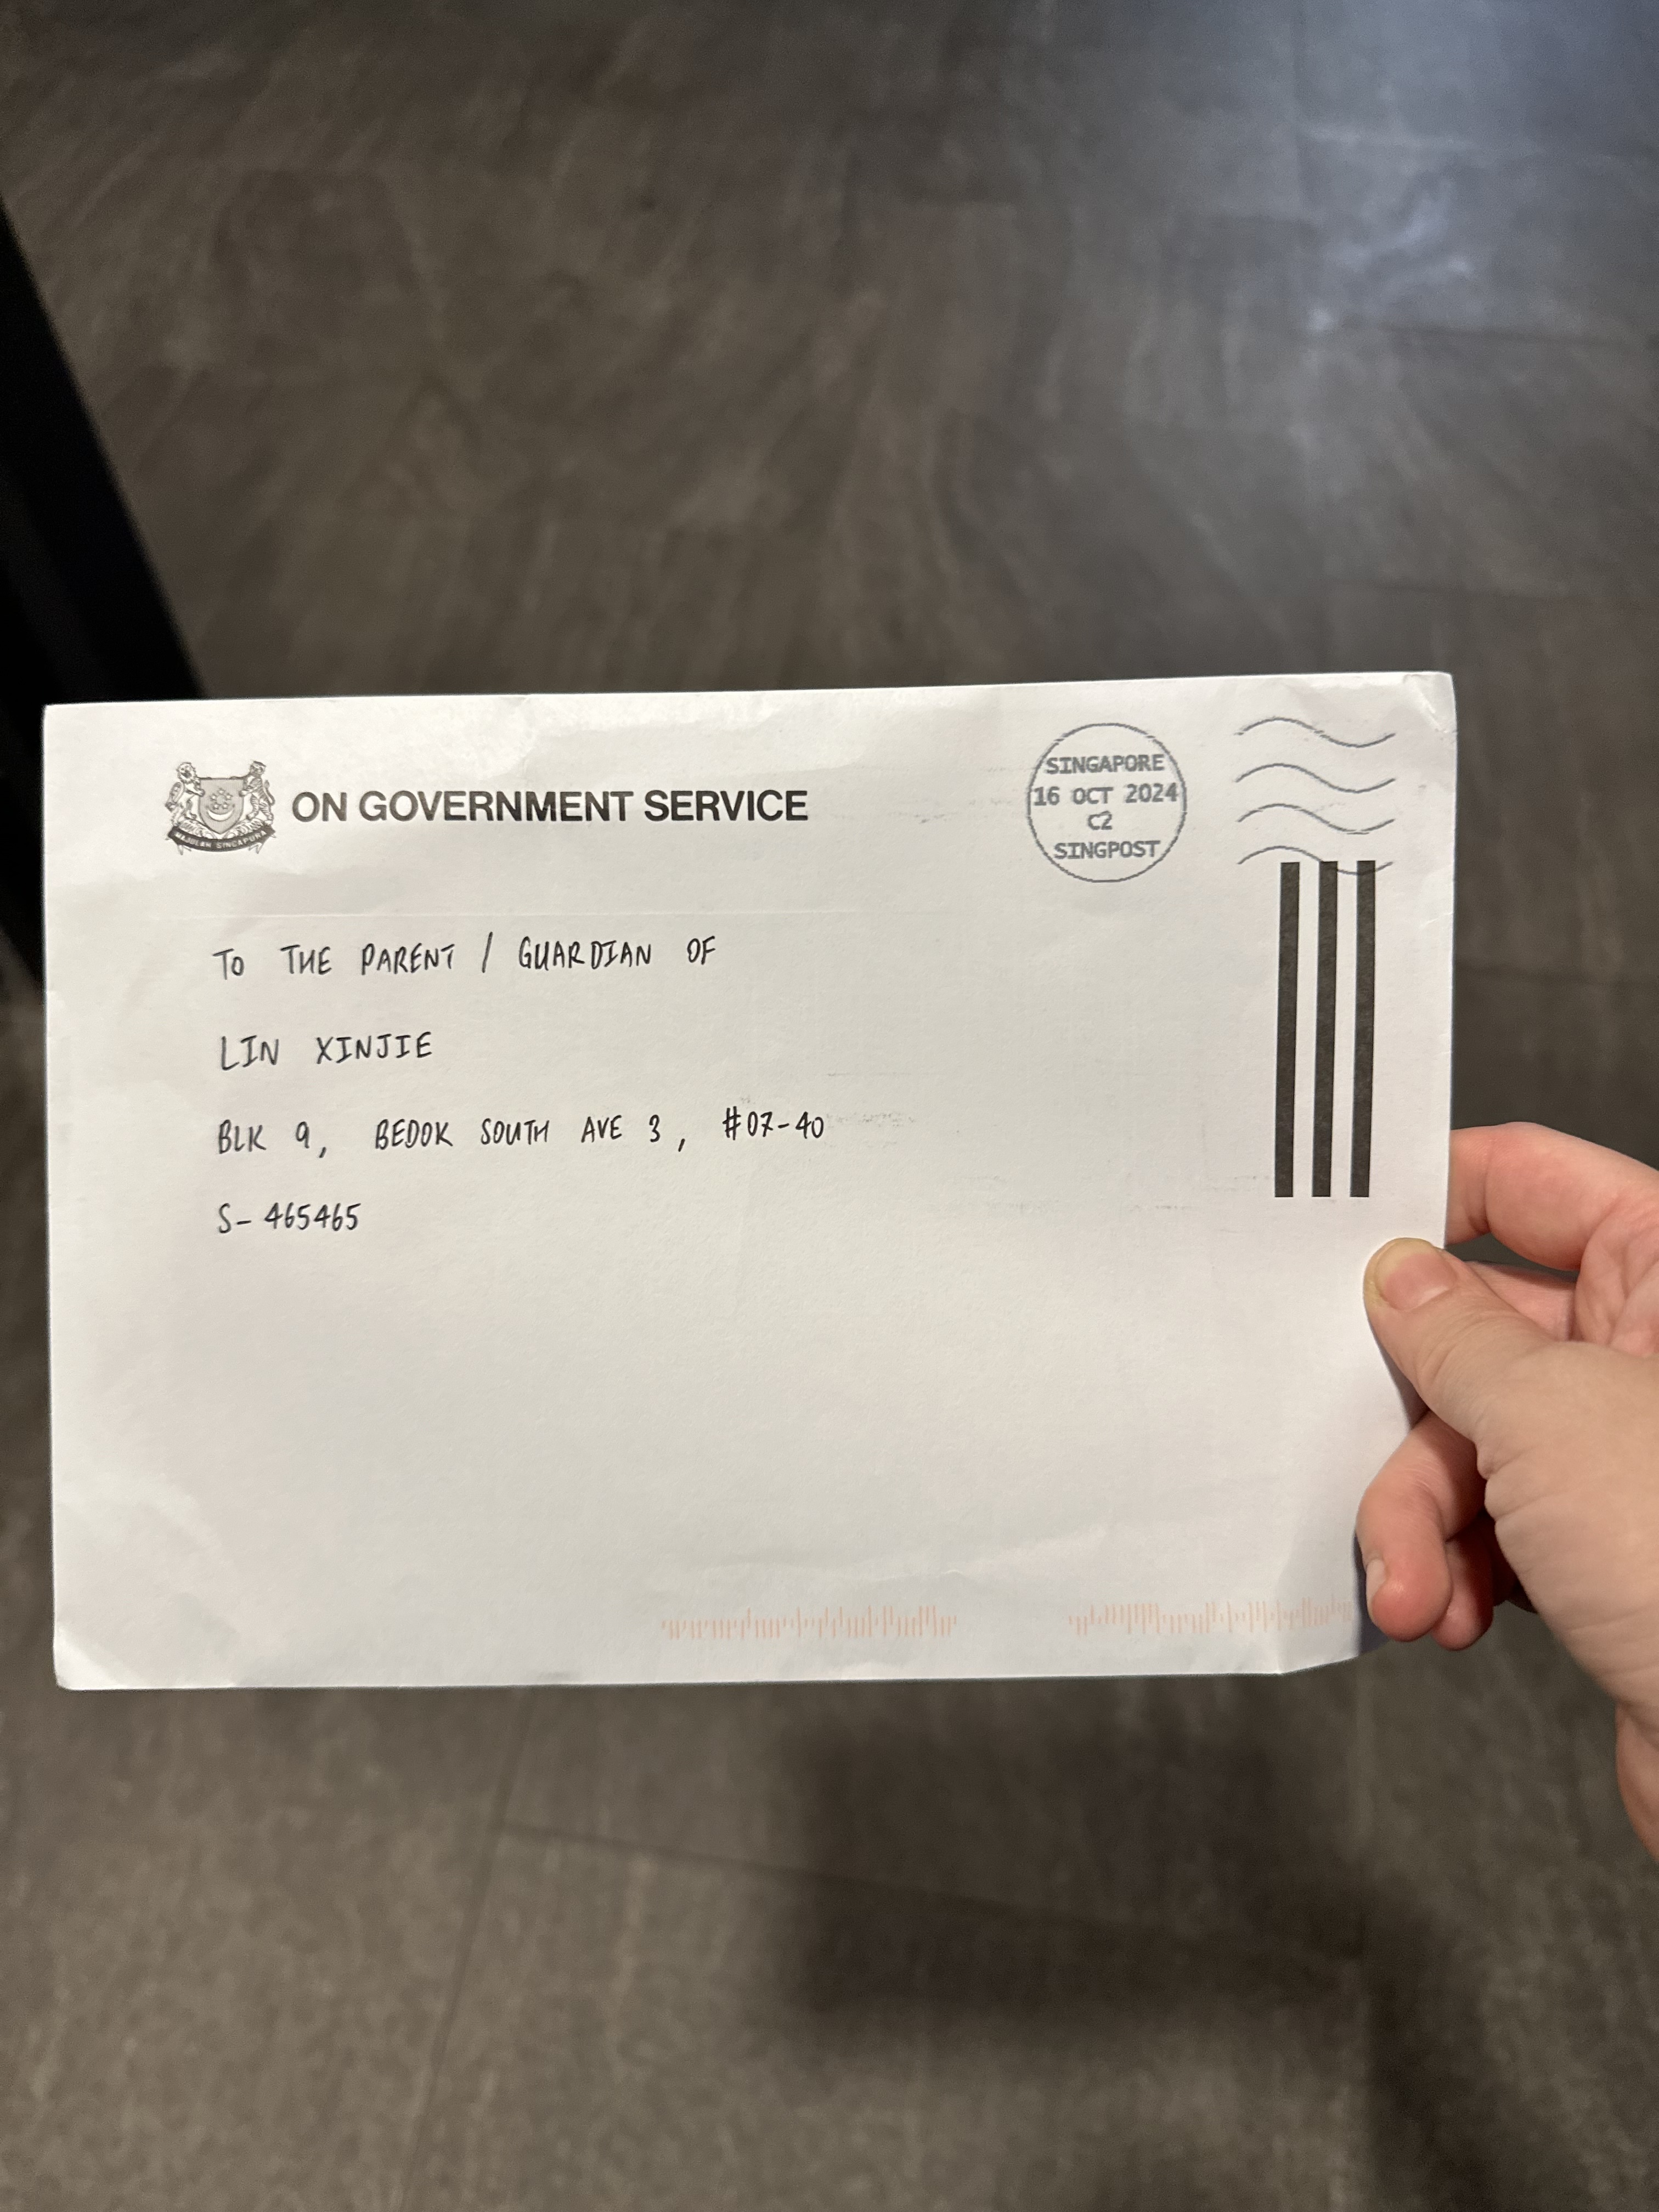 MAJULAH SINGAPURA
ON GOVERNMENT SERVICE
SINGAPORE
16 OCT 2024
C2
SINGPOST
TO THE PARENT / GUARDIAN OF
LIN XINJIE
BLK 9, BEDOK SOUTH AVE 3, #07-40
S-465465